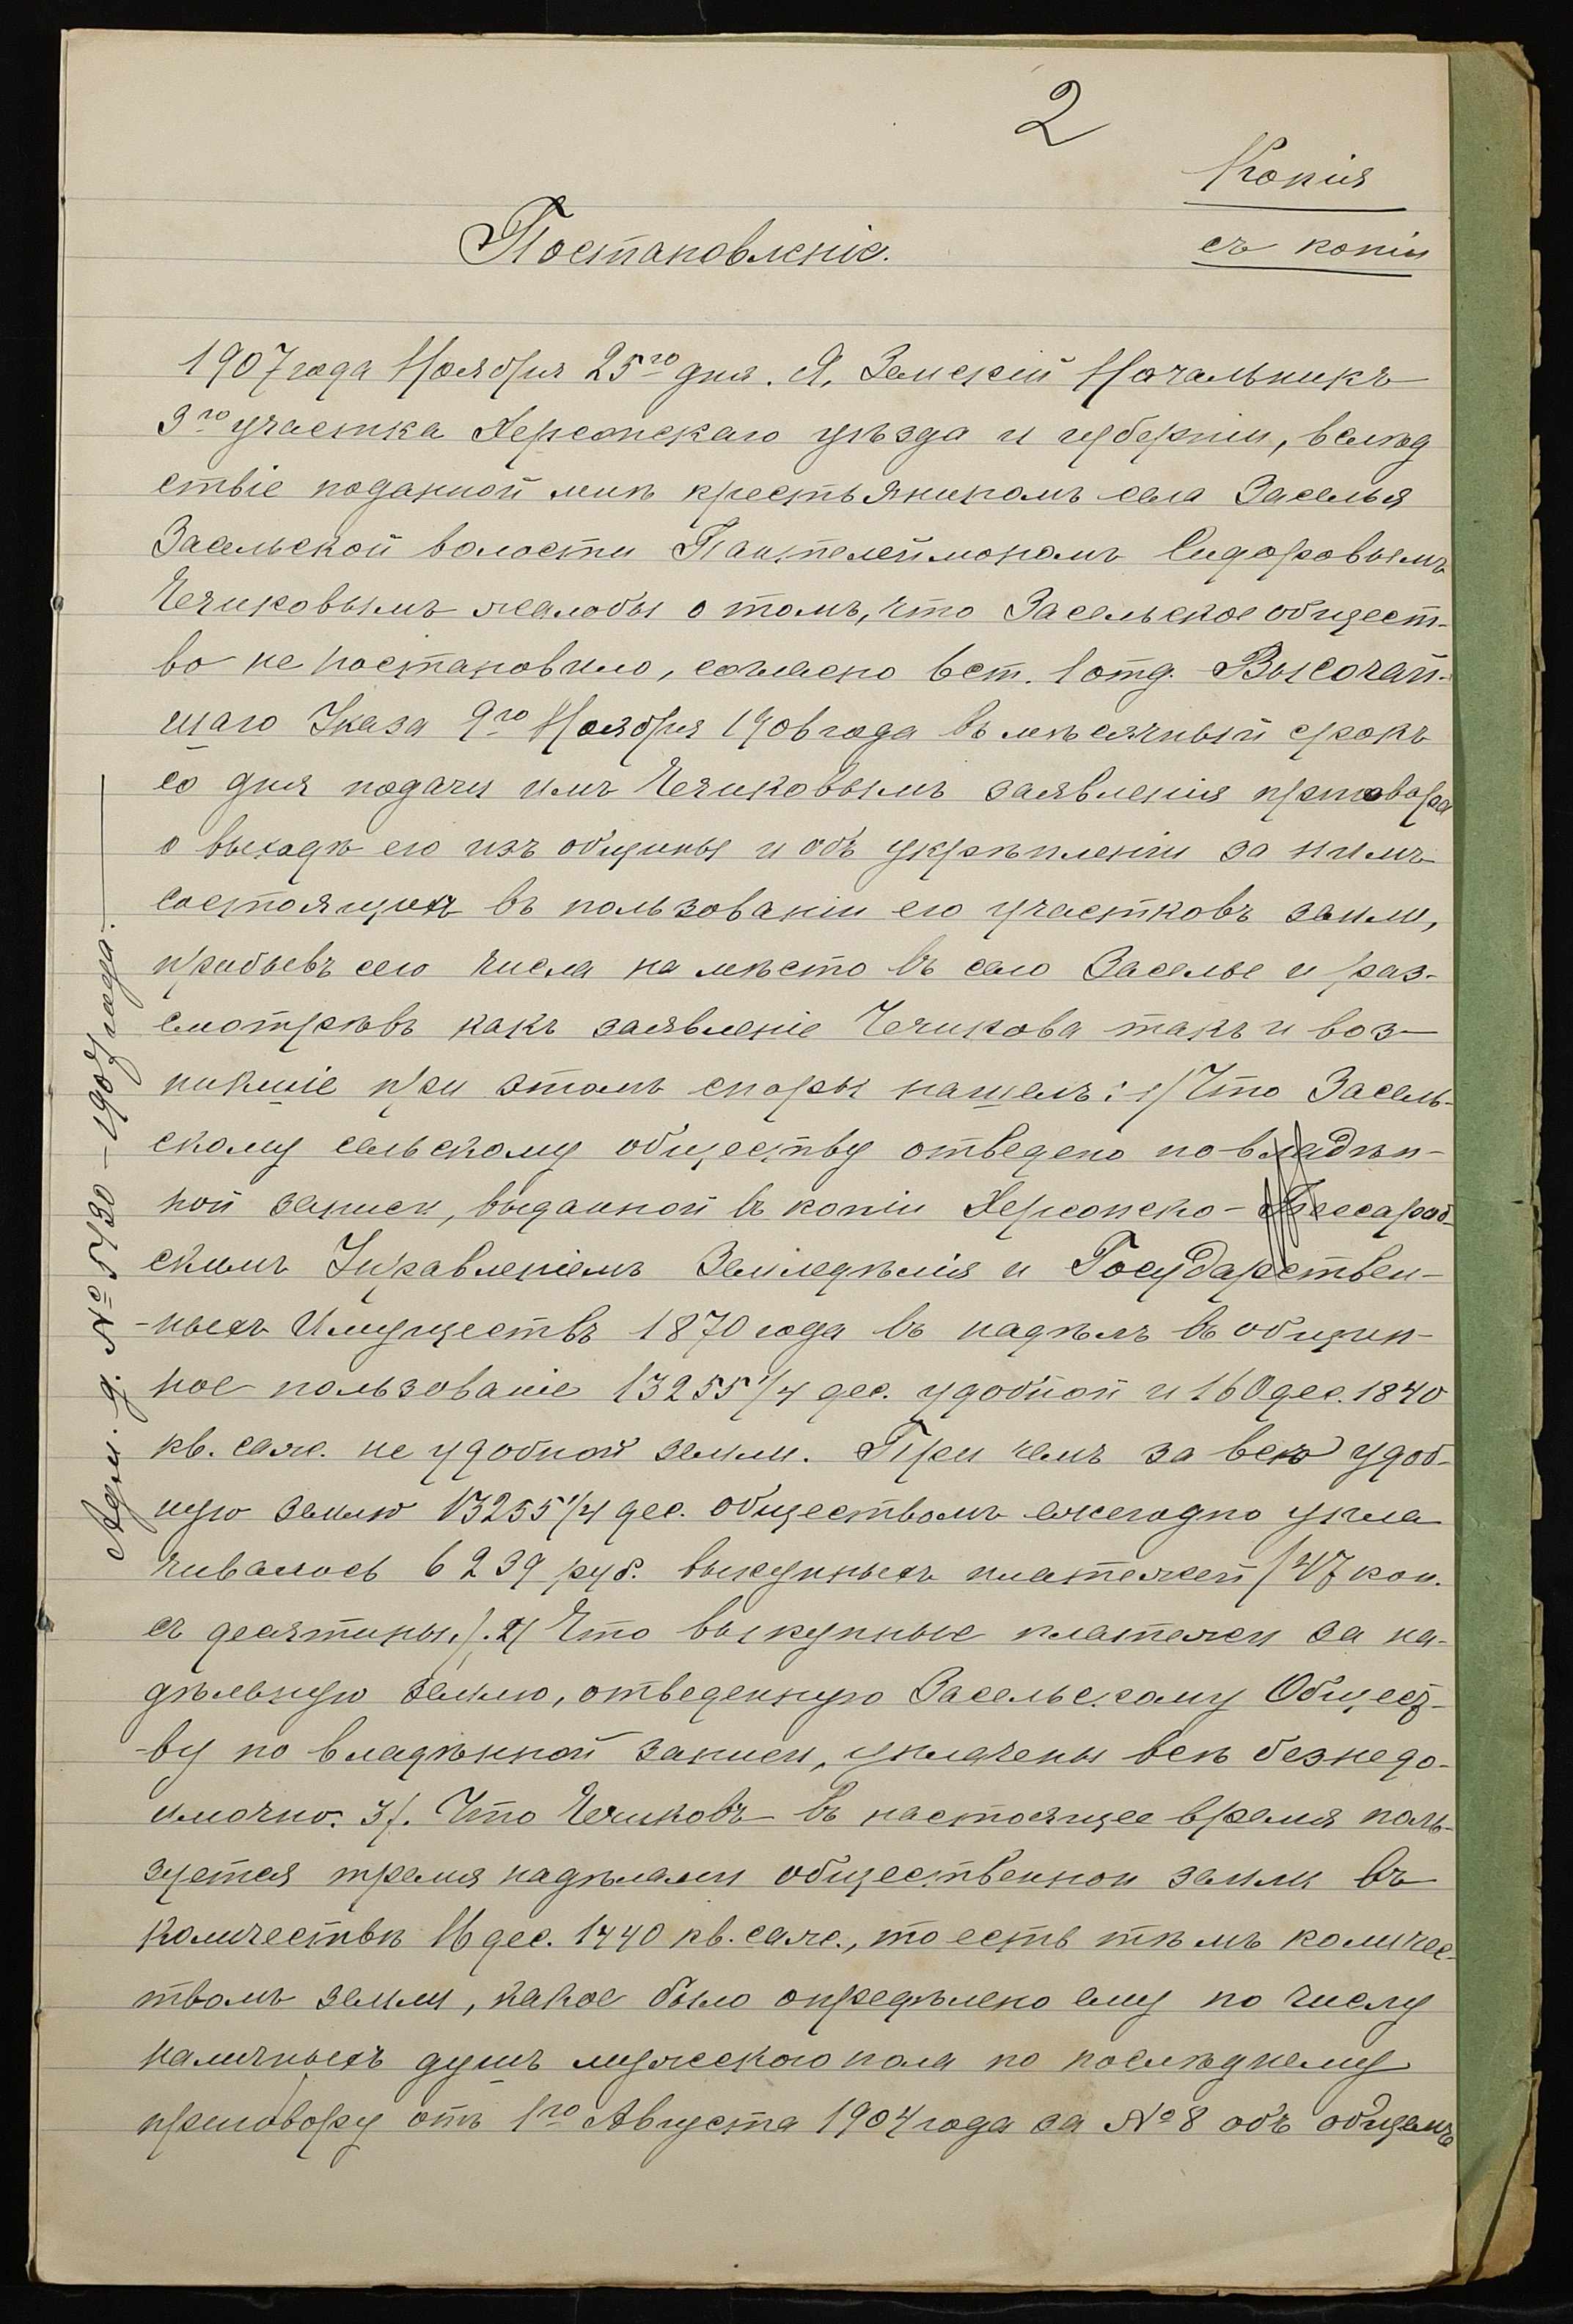 2
Копія
съ копіи
Постановленіе.
1907 года Ноября 25го дня. Я, Земскій Начальникъ
3го участка Херсонскаго уѣзда и губерніи, вслѣд
ствіе поданной мнѣ крестьяниномъ села Заселья
Засельской волости Пантелеймономъ Сидоровымъ
Чечиковымъ жалобы о томъ, что Засельское общест-
во не постановило, согласно 6 ст. 1 отд. Высочай-
шаго Указа 9го Ноября 1906 года въ мѣсячный срокъ
со дня подачи имъ Чечиковымъ заявленія приговора
о выходѣ его изъ общины и объ укрѣпленіи за нимъ
состоящихъ въ пользованіи его участковъ земли,
прибывъ сего числа на мѣсто въ село Заселье и раз-
смотрѣвъ какъ заявленіе Чечикова такъ и воз-
никшіе при этомъ споры нашелъ: 1/ Что Засель-
скому сельскому обществу отведено по владѣн-
ной записи, выданной въ копіи Херсонско-Бессараб-
скимъ Управленіемъ Земледѣлія и Государствен-
-ныхъ Имуществъ 1870 года въ надѣлъ въ общин-
ное пользованіе 13255 1/4 дес. удобной и 160 дес. 1840
кв. саж. не удобной земли. При чемъ за всю удоб-
ную землю 13255 1/4 дес. обществомъ ежегодно упла
чивалось 6239 руб. выкупныхъ платежей /47 коп.
съ десятины/. 2/ Что выкупные платежи за на-
дѣльную землю, отведенную Засельскому Общест-
-ву по владѣнной записи, уплачены всѣ безнедо-
имочно. 3/. Что Чечиковъ въ настоящее время поль-
зуется тремя надѣлами общественной земли въ
количествѣ 16 дес. 1440 кв. саж., то есть тѣмъ количес-
твомъ земли, какое было опредѣлено ему по числу
наличныхъ душъ мужескаго пола по послѣднему
приговору отъ 1го Августа 1904 года за № 8 объ общемъ
Адм. д. № 5430 - 1907 года.